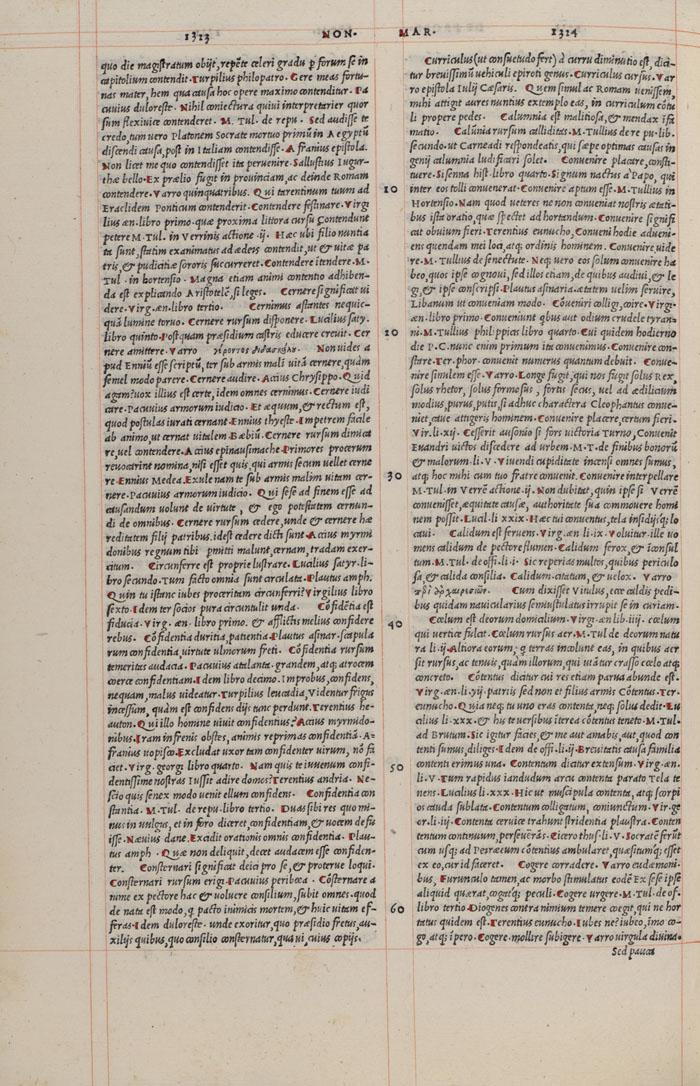 1313 NON· MAR· 1314
quo die magistratum obijt, repẽte celeri gradu ꝑ forum se in
capitolium contendit·Turpilius philopatro· Gere meas fortu-
nas mater, hem qua causa hoc opere maximo contenditur· Pa
cuuius duloreste· Nihil coniectura quiui interpretarier quor
sum flexiuice contenderet· M. Tul. de repu· Sed audisse te
credo, tum uero Platonem Socrate mortuo primũ in Aegyptũ
discendi causa, post in Italiam contendisse· Afranius epistola·
Non licet me quo contendisset ita peruenire· Sallustius Iugur-
thæ bello·Ex prælio fugit in prouinciam, ac deinde Romam
contendere·Varro quinquatribus· Qui tarentinum tuum ad
Eraclidem Ponticum contenderit·Contendere festinare·Virgi
lius æn·libro primo·quæ proxima littora cursu Contendunt
petere M·Tul· in Verrinis actione·ij· Hæc ubi filio nuntia
ta sunt, statim exanimatus ad ædeis contendit, ut & uitæ pa
tris, & pudicitiæ sororis succurreret·Contendere ĩtendere·M·
Tul· in hortensio· Magna etiam animi contentio adhiben-
da est explicando Aristotelẽ, si leges· Cernere significat ui
dere·Virg·æn·libro tertio· Cernimus astantes nequic-
quã lumine toruo· Cernere rursum disponere· Lucilius saty·
libro quinto·Postquam præsidium castris educere creuit· Cer
nere amittere·Varro γέροντος διδασκάλῳ· Non uides a
pud Enniũ esse scriptũ, ter sub armis mali uitã cernere, quàm
semel modo parere·Cernere audire·Accius Chrysippo·Quid
agam?uox illius est certe, idem omnes cernimus·Cernere iudi
care·Pacuuius armorum iudicio· Et æquum, & rectum est,
quod postulas iurati cernant·Ennius thyeste·Impetrem facile
ab animo, ut cernat uitalem Bæbiũ·Cernere rursum dimicæ
re, uel contendere·Accius epinausimache·Primores procerum
reuocarine nomina, nisi esset quis, qui armis secum uellet cerne
re·Ennius Medea·Exule nam te sub armis malim uitam cer-
nere·Pacuuius armorum iudicio· Qui sese ad finem esse ad
causandum uolunt de uirtute, & ego potestatem cernun-
di de omnibus·Cernere rursum cædere, unde & cernere hæ
reditatem filij patribus·idest cædere dicti sunt·Accius myrmi
donibus regnum tibi ꝑmitti malunt, cernam, tradam exer-
citum· Circunferre est proprie lustrare·Lucilius saty·li-
bro secundo·Tum facto omnia sunt circulata·Plautus amph·
Quin tu istanc iubes proceritam circumferri?Virgilius libro
sexto·Idem ter socios pura circuntulit unda· Cõfidẽtia est
fiducia·Virg·æn·libro primo·& afflictis melius confidere
rebus· Cõfidentia duritia, patientia·Plautus asinar·scapula
rum confidentia, uirtute ulmorum freti· Cõfidentia rursum
temeritas audacia·Pacuuius atalante·grandem, atq; atrocem
coerce confidentiam·Idem libro decimo·Improbus, confidens,
nequam, malus uideatur·Turpilius leucadia, Videntur frigus
incessum, quàm est confidens dijs tunc perdunt·Terentius he-
auton·Qui illo homine uiuit confidentius?Accius myrmido-
nibus·Iram infrenis obstes, animis reprimas confidentiã·A-
franius uopisco·Excludat uxor tam confidenter uirum, nõ fa
ciet·Virg·georgi libro quarto· Nam quis te iuuenum confi-
dentissime nostras Iussit adire domos?Terentius andria· Ne-
scio quis senex modo uenit ellum confidens· Confidentia con
stantia· M·Tul· de repu·libro tertio· Duas sibi res quo mi-
nus in uulgus, et in foro diceret, confidentiam, & uocem defu
isse·Næuius dane·Excidit orationis omnis confidentia·Plau-
tus amph· Quæ non deliquit, decet audacem esse confiden-
ter· Consternari significat deici pro se, & proterue loqui·
Consternari rursum erigi·Pacuuius peribœa· Cõsternare a
nime ex pectore hac & uoluere consilium, subit omnes·quod
de nata est modo, q̃ pacto inimicis mortem, & huic uitam ef-
feras·Idem duloreste·unde exoritur, quo præsidio fretus, au-
xilijs quibus, quo consilio consternatur, qua ui, cuius copijs·
10
20
30
40
50
60
Curriculus (ut consuetudo fert) à curru diminutio est, dici-
tur breuissimũ uehiculi epiroti genus·Curriculus cursus·Var
ro epistola Iulij Cæsaris· Quem simul ac Romam uenissem,
mihi attigit aures nuntius extemplo eas, in curriculum cõtu
li propere pedes· Calumnia est malitiosa, & mendax ĩfa
matio· Calũnia rursum calliditas·M·Tullius de re pu·lib·
secundo·ut Carneadi respondeatis, qui sæpe optimas causas in
genij calumnia ludificari solet· Conuenire placere, consti-
tuere·Sisenna hist·libro quarto·Signum nactus à Papo, qui
inter eos tolli conuenerat·Conuenire aptum esse·M·Tullius in
Hortensio·Nam quod ueteres ne non conueniat nostris ætati-
bus ista oratio, quæ spectet ad hortandum·Conuenire signifi
cat obuium fieri·Terentius eunucho, Conueni hodie adueni-
ens quendam mei loci, atq; ordinis hominem·Conuenire, uide
re·M·Tullius de senectute·Neq; uero eos solum conuenire ha
beo, quos ipse cognoui, sed illos etiam, de quibus audiui, & le
gi, & ipse conscripsi·Plautus asinaria·ætatem uelim seruire,
Libanum ut conueniam modo· Cõuenĩri colligi, coire·Virg·
æn·libro primo·Conueniunt qbus aut odium crudele tyran-
ni·M·Tullius philippicas libro quarto·Cui quidem hodierno
die P.C. nunc enim primum ita conuenimus·Conuenire con-
stare·Ter·phor·conuenit numerus quantum debuit· Conue-
nire similem esse·Varro·Longe fugit, qui nos fugit solus Rex,
solus rhetor, solus formosus, fortis æcus, uel ad ædilicium
modius, purus, putus, si adhuc charactera Cleophantus conue-
niet, caue attigeris hominem·Conuenire placere, certum fieri·
Vir·li·xij·Cesserit ausonio si fors uictoria Turno, Conuenit
Euandri uictos discedere ad urbem·M·T·de finibus bonorũ
& malorum·li·V·Viuendi cupiditate incensi omnes sumus,
atq; hoc mihi cum tuo fratre conuenit·Conuenire interpellare
M·Tul·in Verrẽ actione·ij·Non dubitat, quin ipse si Verrẽ
conuenisset, æquitate causæ, authoritate sua commouere homi
nem possit·Lucil·li xxix·Hæc tui conuentus, tela insidijsq; lo
caui· Calidum est feruens·Virg·æn·li·ix·Voluitur ille uo
mens calidum de pectore flumen·Calidum ferox, & ĩconsul
tum·M·Tul·de offi·li·i·Sic reperias multos, quibus periculo
sa, & calida consilia·Calidum·citatum, & uelox· Varro
Cum dixisset Vitulus, ecce calidis pedi-
bus quidam nauicularius semiustulatus irrupit se in curiam·
Cœlum est deorum domicilium·Virg·æn lib·iiij·cœlum
qui uertice fulcit·Cœlum rursus aer·M·Tul·de deorum natu
ra li·ij·Altiora eorum;q̃ terras incolunt eas, in quibus aer
sit rursus, ac tenuis, quàm illorum, qui utãtur crasso cœlo atq;
concreto· Cõtentus dicitur cui res etiam parua abunde est·
Virg·æn·li·yij·patrijs sed non et filius armis Cõtentus·Ter·
eunucho·Quia neq; tu uno eras contenta, neq; solus dedit·Lu
cilius li·xxx·& his te uersibus ĩterea cõtentus teneto·M·Tul·
ad Brutum·Sic igitur facies, & me aut amabis, aut, quod con
tenti sumus, diliges·Idem de offi·li·ij·Breuitatis causa familia
contenti erimus una· Contentum dicitur extensum·Virg·æn·
li·V·Tum rapidus iandudum arcu contenta parato Tela te
nens·Lucilius li·xxx·Hic ut muscipula contenta, atq; scorpi
os cauda sublata·Contentum colligatum, coniunctum·Vir·ge
or·li·iij·Contenta ceruice trahunt stridentia plaustra·Conten
tentum continuum, perseuerãs·Cicero thus·li·V·Socratẽ ferũt
cum usq; ad uesperum cõtentius ambularet, quæsitumq; esset
ex eo, cur id faceret· Cogere corradere·Varro eudæmoni-
bus, Furunculo tamen, ac morbo stimulatus eodẽ Ex se se ipse
aliquid quærat, cogatq; peculi·Cogere urgere·M·Tul·de of·
libro tertio·Diogenes contra nimium temere coegit, qui ne hor
tatus quidem est·Terentius eunucho·Iubes ne?iubeo, ĩmo co-
go, atq; ĩpero·Cogere·mollire subigere·Varro uirgula diuina·
Sed pauca